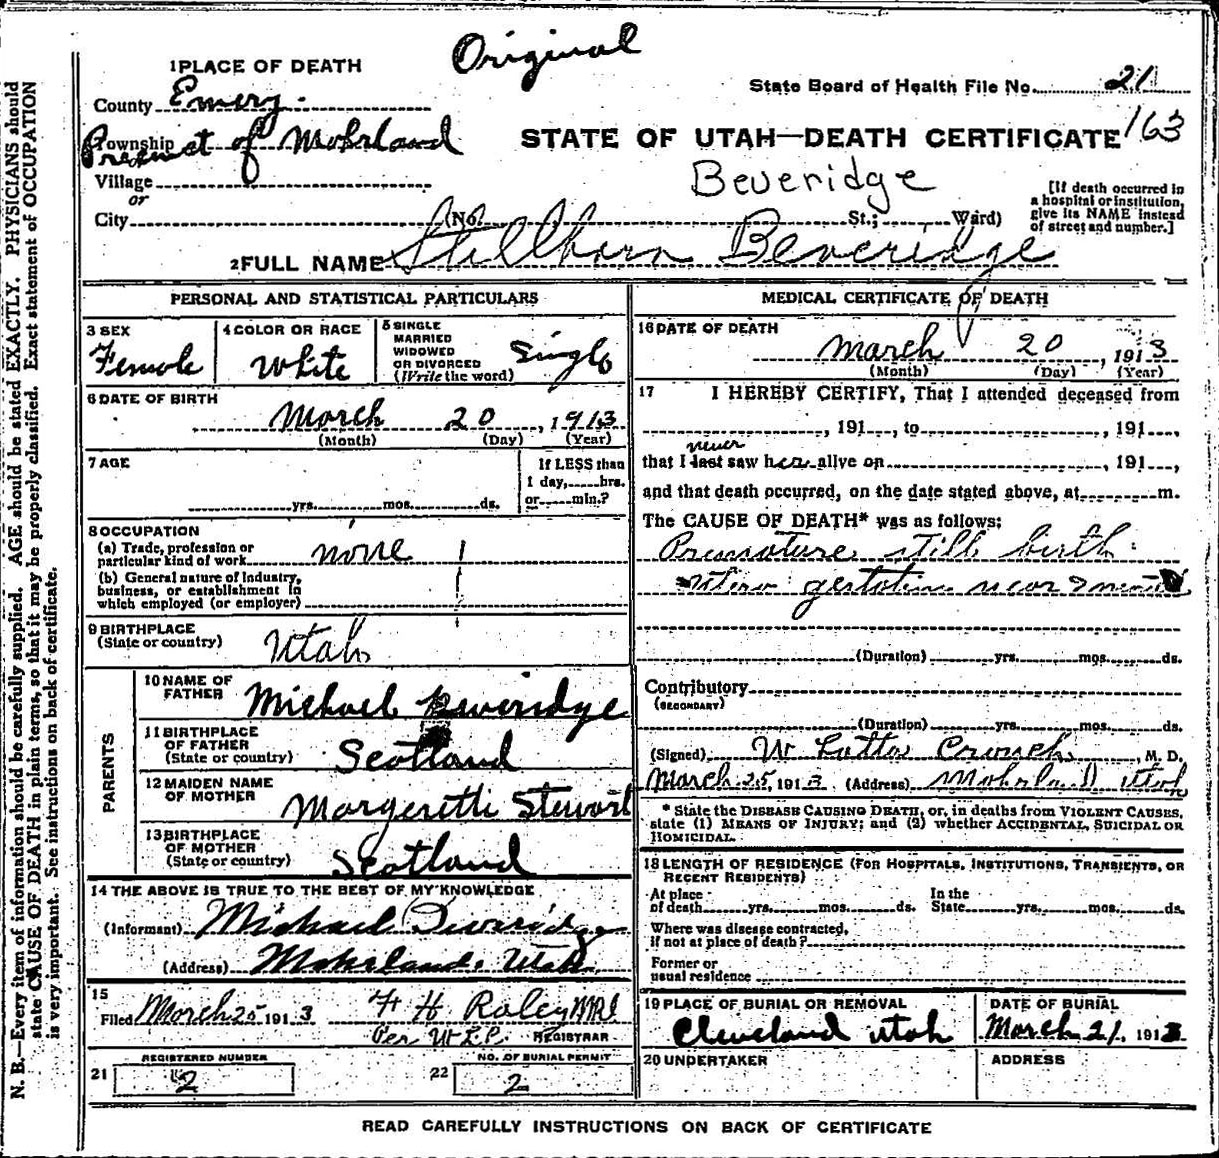 Original
1 PLACE OF DEATH
State Board of Health File No. 21
County Emery.
163
Township Precinct of Mohrland
STATE OF UTAH—DEATH CERTIFICATE
Village
Beveridge
or
City (No. St.; Ward)
[If death occurred in
a hospital or institution,
give its NAME instead
of street and number.]
2 FULL NAME Stillborn Beveridge
PERSONAL AND STATISTICAL PARTICULARS
3 SEX
Female
4 COLOR OR RACE
White
5 SINGLE
MARRIED
WIDOWED
OR DIVORCED
(Write the word)
Single
6 DATE OF BIRTH
March 20, 1913
(Month) (Day) (Year)
7 AGE
yrs. mos. ds.
If LESS than
1 day, hrs.
or min.?
8 OCCUPATION
(a) Trade, profession or
particular kind of work none
(b) General nature of Industry,
business, or establishment in
which employed (or employer)
9 BIRTHPLACE
(State or country) Utah
PARENTS
10 NAME OF
FATHER Michael Beveridge
11 BIRTHPLACE
OF FATHER
(State or country) Scotland
12 MAIDEN NAME
OF MOTHER Margeretti Stewart
13 BIRTHPLACE
OF MOTHER
(State or country) Scotland
14 THE ABOVE IS TRUE TO THE BEST OF MY KNOWLEDGE
(Informant) Michael Beveridge
(Address) Mohrland, Utah
15
Filed March 25 1913 F H Raley
Per W.L.P. REGISTRAR
REGISTERED NUMBER
21 2
NO. OF BURIAL PERMIT
22 2
MEDICAL CERTIFICATE OF DEATH
16 DATE OF DEATH
March 20, 1913
(Month) (Day) (Year)
17 I HEREBY CERTIFY, That I attended deceased from
, 191 , to , 191 ,
never
that I last saw her alive on , 191 ,
and that death occurred, on the date stated above, at m.
The CAUSE OF DEATH* was as follows:
Premature still birth
utero gestation near
(Duration) yrs. mos. ds.
Contributory
(SECONDARY)
(Duration) yrs. mos. ds.
(Signed) W Latta Crouch, M. D.
March 25, 1913 (Address) Mohrland Utah
* State the DISEASE CAUSING DEATH, or, in deaths from VIOLENT CAUSES,
state (1) MEANS OF INJURY; and (2) whether ACCIDENTAL, SUICIDAL OR
HOMICIDAL.
18 LENGTH OF RESIDENCE (FOR HOSPITALS, INSTITUTIONS, TRANSIENTS, OR
RECENT RESIDENTS)
At place
of death yrs. mos. ds.
In the
State yrs. mos. ds.
Where was disease contracted,
if not at place of death?
Former or
usual residence
19 PLACE OF BURIAL OR REMOVAL
Cleveland Utah
DATE OF BURIAL
March 21, 1913
20 UNDERTAKER
ADDRESS
READ CAREFULLY INSTRUCTIONS ON BACK OF CERTIFICATE
N. B.—Every item of information should be carefully supplied. AGE should be stated EXACTLY. PHYSICIANS should
state CAUSE OF DEATH in plain terms, so that it may be properly classified. Exact statement of OCCUPATION
is very important. See instructions on back of certificate.